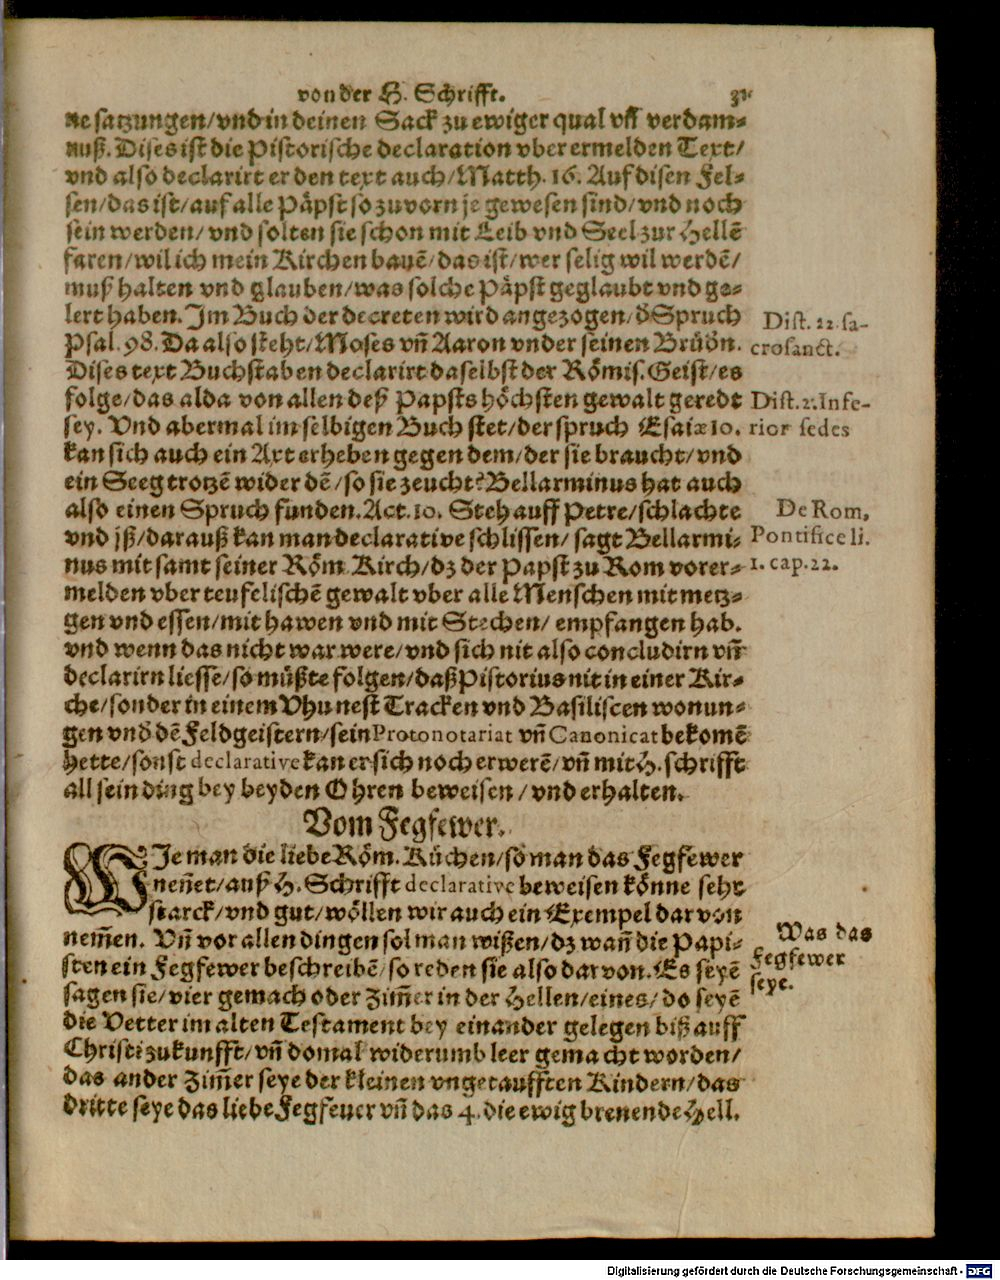 von der H. Schrifft. 31
ne satzungen/vnd in deinen Sack zu ewiger qual vff verdam-
nuß. Dises ist die Pistorische declaration vber ermelden Text/
vnd also declarirt er den text auch/Matth. 16. Auf disen Fel-
sen/das ist/auf alle Päpst so zuvorn je gewesen sind/vnd noch
sein werden/vnd solten sie schon mit Leib vnd Seel zur Hellē
faren/wil ich mein Kirchen bauē/das ist/wer selig wil werdē/
muß halten vnd glauben/was solche Päpst geglaubt vnd ge-
lert haben. Im Buch der decreten wird angezogen/ď Spruch
Psal. 98. Da also steht/Moses vñ Aaron vnder seinen Brüdn.
Dises text Buchstaben declarirt daselbst der Römis. Geist/es
folge/das alda von allen deß Papsts höchsten gewalt geredt
sey. Vnd abermal im selbigen Buch stet/der spruch Esaiæ 10.
kan sich auch ein Axt erheben gegen dem/der sie braucht/vnd
ein Seeg trotzē wider dē/so sie zeucht? Bellarminus hat auch
also einen Spruch funden. Act. 10. Steh auff Petre/schlachte
vnd jß/darauß kan man declarative schlissen/sagt Bellarmi-
nus mit samt seiner Röm. Kirch/dz der Papst zu Rom vorer-
melden vber teufelischē gewalt vber alle Menschen mit metz-
gen vnd essen/mit hawen vnd mit Stechen/empfangen hab.
vnd wenn das nicht war were/vnd sich nit also concludirn vñ
declarirn liesse/so müßte folgen/daß Pistorius nit in einer Kir-
che/sonder in einem Vhu nest Tracken vnd Basiliscen wonun-
gen vnd dē Feldgeistern/sein Protonotariat vñ Canonicat bekomē
hette/sonst declarative kan er sich noch erwerē/vñ mit H. schrifft
all sein ding bey beyden Ohren beweisen/vnd erhalten.
Dist. 22. sa-
crosanct.
Dist. 2. Infe-
rior sedes
De Rom,
Pontifice li.
1. cap. 22.
Vom Fegfewer.
WJe man die liebe Röm. Küchen/so man das Fegfewer
nenēt/auß H. Schrifft declarative beweisen könne sehr
starck/vnd gut/wöllen wir auch ein Exempel dar von
nem̄en. Vñ vor allen dingen sol man wißen/dz wañ die Papi-
sten ein Fegfewer beschreibē/so reden sie also darvon. Es seyē
sagen sie/vier gemach oder Zim̄er in der Hellen/eines/do seyē
die Vetter im alten Testament bey einander gelegen biß auff
Christi zukunfft/vñ domal widerumb leer gemacht worden/
das ander Zim̄er seye der kleinen vngetaufften Kindern/das
dritte seye das liebe Fegfeuer vñ das 4. die ewig brenende Hell.
Was das
Fegfewer
seye.
Digitalisierung gefördert durch die Deutsche Forschungsgemeinschaft - DFG